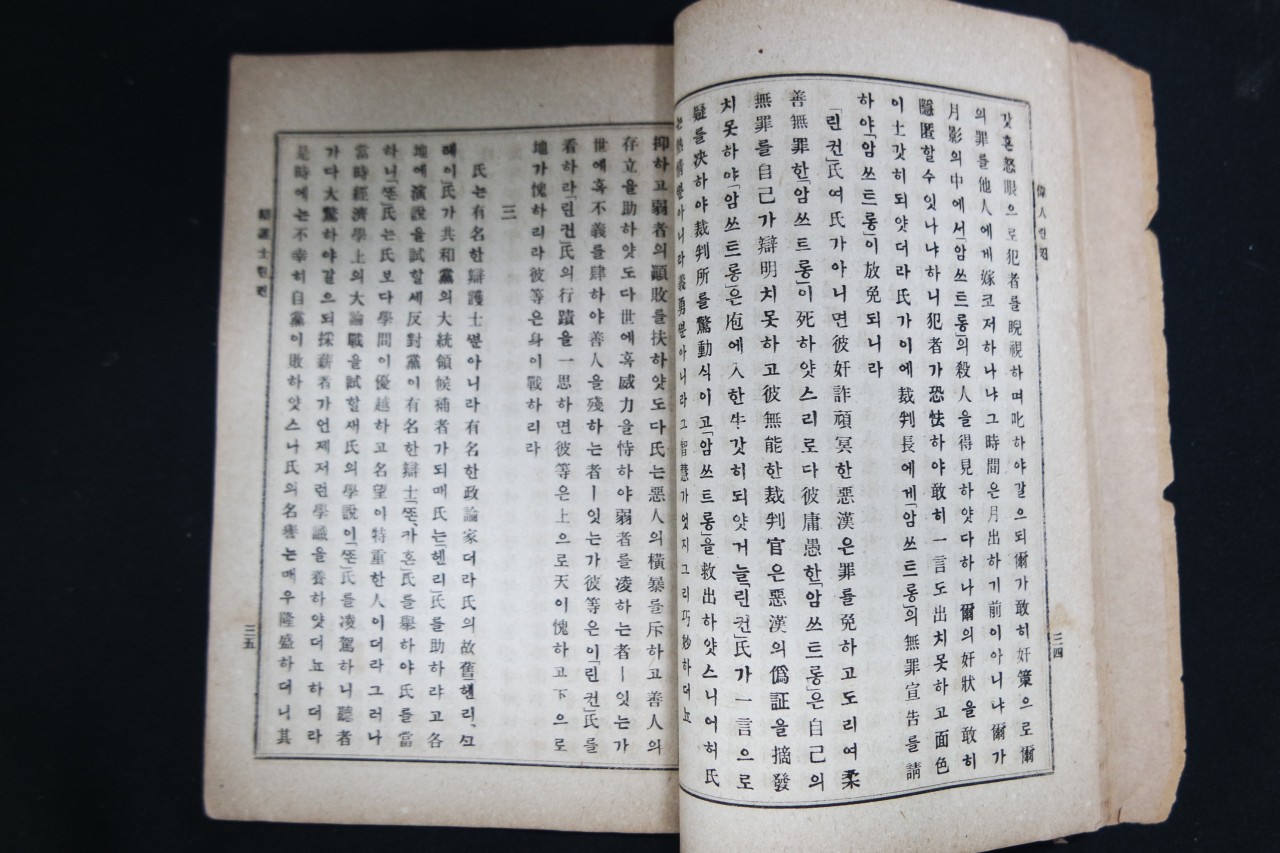 偉人린컨
三四
갓흔怒眼으로犯者를睨視하며叱하야갈으되爾가敢히奸策으로爾
의罪를他人에게嫁코저하나냐그時間은月出하기前이아니냐爾가
月影의中에서「암쓰트롱」의殺人을得見하얏다하나爾의奸狀을敢히
隱匿할수잇나냐하니犯者가恐怯하야敢히一言도出치못하고面色
이土갓히되얏더라氏가이에裁判長에게「암쓰트롱」의無罪宣告를請
하야「암쓰트롱」이放免되니라
「린컨」氏여氏가아니면彼奸詐頑冥한惡漢은罪를免하고도리여柔
善無罪한「암쓰트롱」이死하얏스리로다彼庸愚한「암쓰트롱」은自己의
無罪를自己가辯明치못하고彼無能한裁判官은惡漢의僞証을摘發
치못하야「암쓰트롱」은庖에入한牛갓히되얏거늘「린컨」氏가一言으로
疑를决하야裁判所를驚動식이고「암쓰트롱」을救出하얏스니어허氏
는熱情뿐아니라義勇뿐아니라그智慧가엇지그리巧妙하더뇨
抑하고弱者의顚敗를扶하얏도다氏는惡人의橫暴를斥하고善人의
存立을助하얏도다世에혹威力을恃하야弱者를凌하는者ㅣ잇는가
世에혹不義를肆하야善人을殘하는者ㅣ잇는가彼等은이「린컨」氏를
看하라「린컨」氏의行蹟을一思하면彼等은上으로天이愧하고下으로
地가愧하리라彼等은身이戰하리라
三
氏는有名한辯護士뿐아니라有名한政論家더라氏의故舊「헨리,
래이」氏가共和黨의大統領候補者가되매氏는「헨리」氏를助하랴고各
地에演說을試할세反對黨이有名한辯士「똔,카혼」氏를擧하야氏를當
하니「똔」氏는氏보다學問이優越하고名望이特重한人이더라그러나
當時經濟學上의大論戰을試할새氏의學說이「똔」氏를凌駕하니聽者
가다大驚하야갈으되採薪者가언제저런學識을養하얏더뇨하더라
是時에는不幸히自黨이敗하얏스나氏의名譽는매우隆盛하더니其
護士린컨
三五